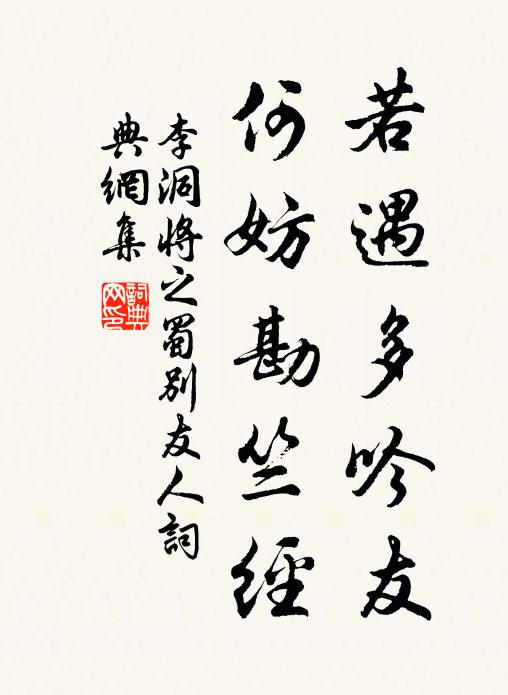 若遇多吟友
何妨勘竺經
李洞將之蜀別友人詞
典網集
詞典
网印